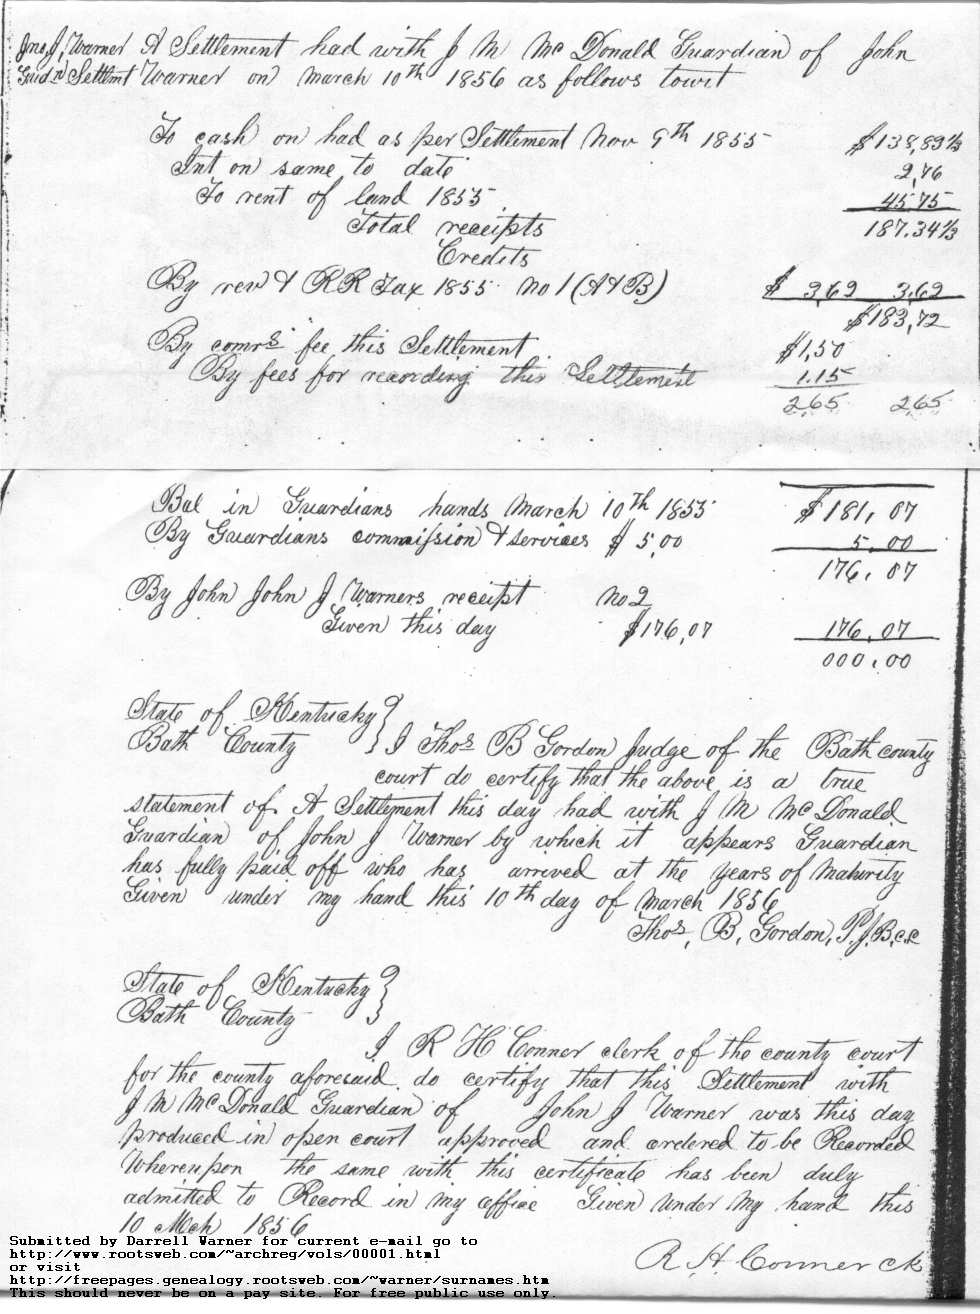 Jno. J. Warner A Settlement had with J M McDonald Guardian of John
Guidn Settlmt Warner on March 10th 1856 as follows towit
To cash on had as per Settlement Nov 9th 1855 $138,83 1/3
Int on same to date 2,76
To rent of land 1855. 45.75
Total receipts 187.34 1/3
Credits
By rev & RR Tax 1855 No 1 (A & B) $ 3,62 3,62
$183,72
By comrs fee this Settlement $1,50
By fees for recording this Settlement 1.15
2,65 2,65
Bal in Guardians hands March 10th 1855 $181,07
By Guardians commission & services $ 5,00 5.00
176.07
By John John J Warners receipt No 2
Given this day $176,07 176,07
000,00
State of Kentucky }
Bath County } I Thos B Gordon Judge of the Bath county
court do certify that the above is a true
statement of A Settlement this day had with J M McDonald
Guardian of John J Warner by which it appears Guardian
has fully paid off who has arrived at the years of Maturity
Given under my hand this 10th day of March 1856
Thos, B, Gordon, P.J.B.C.C
State of Kentucky }
Bath County }
I R H Conner clerk of the county court
for the county aforesaid do certify that this Settlement with
J M McDonald Guardian of John J Warner was this day
produced in open court approved and ordered to be Recorded
Whereupon the same with this certificate has been duly
admitted to Record in my office Given under my hand this
10 Mch 1856
R H Conner ck
Submitted by Darrell Warner for current e-mail go to
http://www.rootsweb.com/~archreg/vols/00001.html
or visit
http://freepages.genealogy.rootsweb.com/~warner/surnames.htm
This should never be on a pay site. For free public use only.